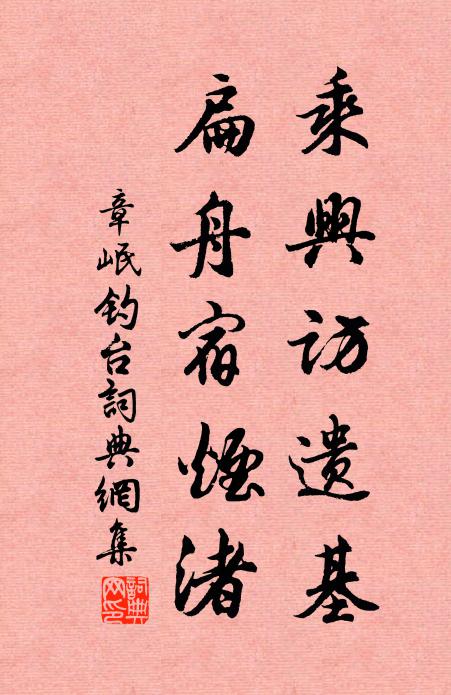 乘興訪遺基
扁舟宿煙渚
章岷釣台詞典網集
詞典网印